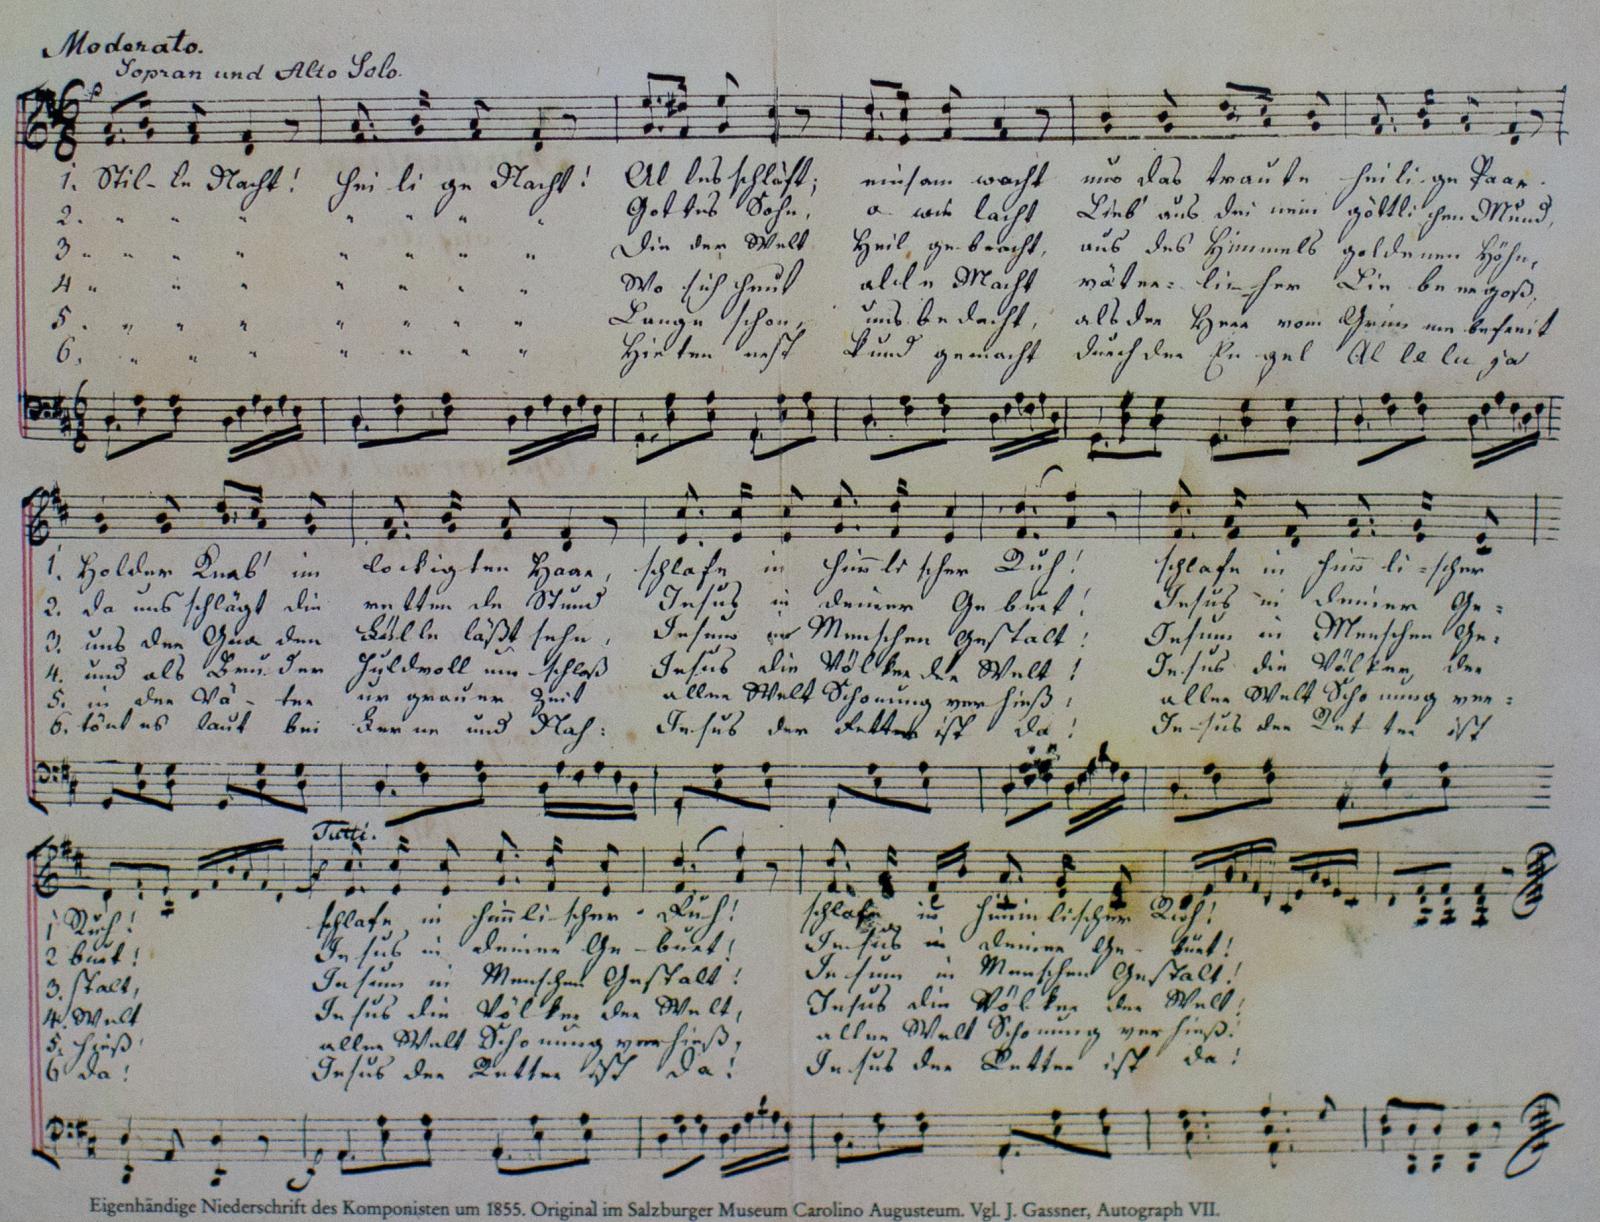 Moderato.
Sopran und Alto Solo.
1. Stil-le Nacht! Hei li ge Nacht! Al les schläft; einsam wacht nur das traute heili-ge Paar.
2. " " " " " " " Gottes Sohn, o wie lacht Lieb' aus dei nem göttli chen Mund,
3 " " " " " " " Die der Welt Heil ge-bracht, aus des Himmels goldenen Höhn,
4 " " " " " " " Wo sich heut alle Macht väter= li-cher Lie be ergoß,
5. " " " " " " " Lange schon, uns bedacht, als der Herr vom Grim me befreit
6. " " " " " " " Hirten erst kund gemacht durch der En gel Al le lu ja
1. Holder Knab' im lockigten Haar, schlafe in himli scher Ruh! schlafe in him li-scher
2. da uns schlägt die retten de Stund Jesus in deiner Ge burt! Jesus in deiner Ge=
3. uns der Gna den Fülle läßt sehn, Jesum in Menschen Gestalt! Jesum in Menschen Ge=
4. und als Bru der huldvoll um schloß Jesus die Völker der Welt! Jesus die Völker der
5. in der Vä-ter ur grauer Zeit aller Welt Schonung ver hieß, aller Welt Scho nung ver=
6. tönt es laut bei Fer ne und Nah: Jesus der Retter ist da! Je-sus der Ret ter ist
Tutti.
1 Ruh! schlafe in himli-scher Ruh! schlafe in himmlischer Ruh!
2 burt! Jesus in deiner Ge-burt! Jesus in deiner Ge-burt!
3. stalt, Jesum in Menschen Gestalt! Je sum in Menschen Gestalt!
4. Welt Je sus die Völ ker der Welt, Jesus die Völker der Welt!
5. hieß aller Welt Scho nung verhieß, aller Welt Scho nung ver hieß.
6 da! Jesus der Retter ist da! Je sus der Retter ist da!
Eigenhändige Niederschrift des Komponisten um 1855. Original im Salzburger Museum Carolino Augusteum. Vgl. J. Gassner, Autograph VII.